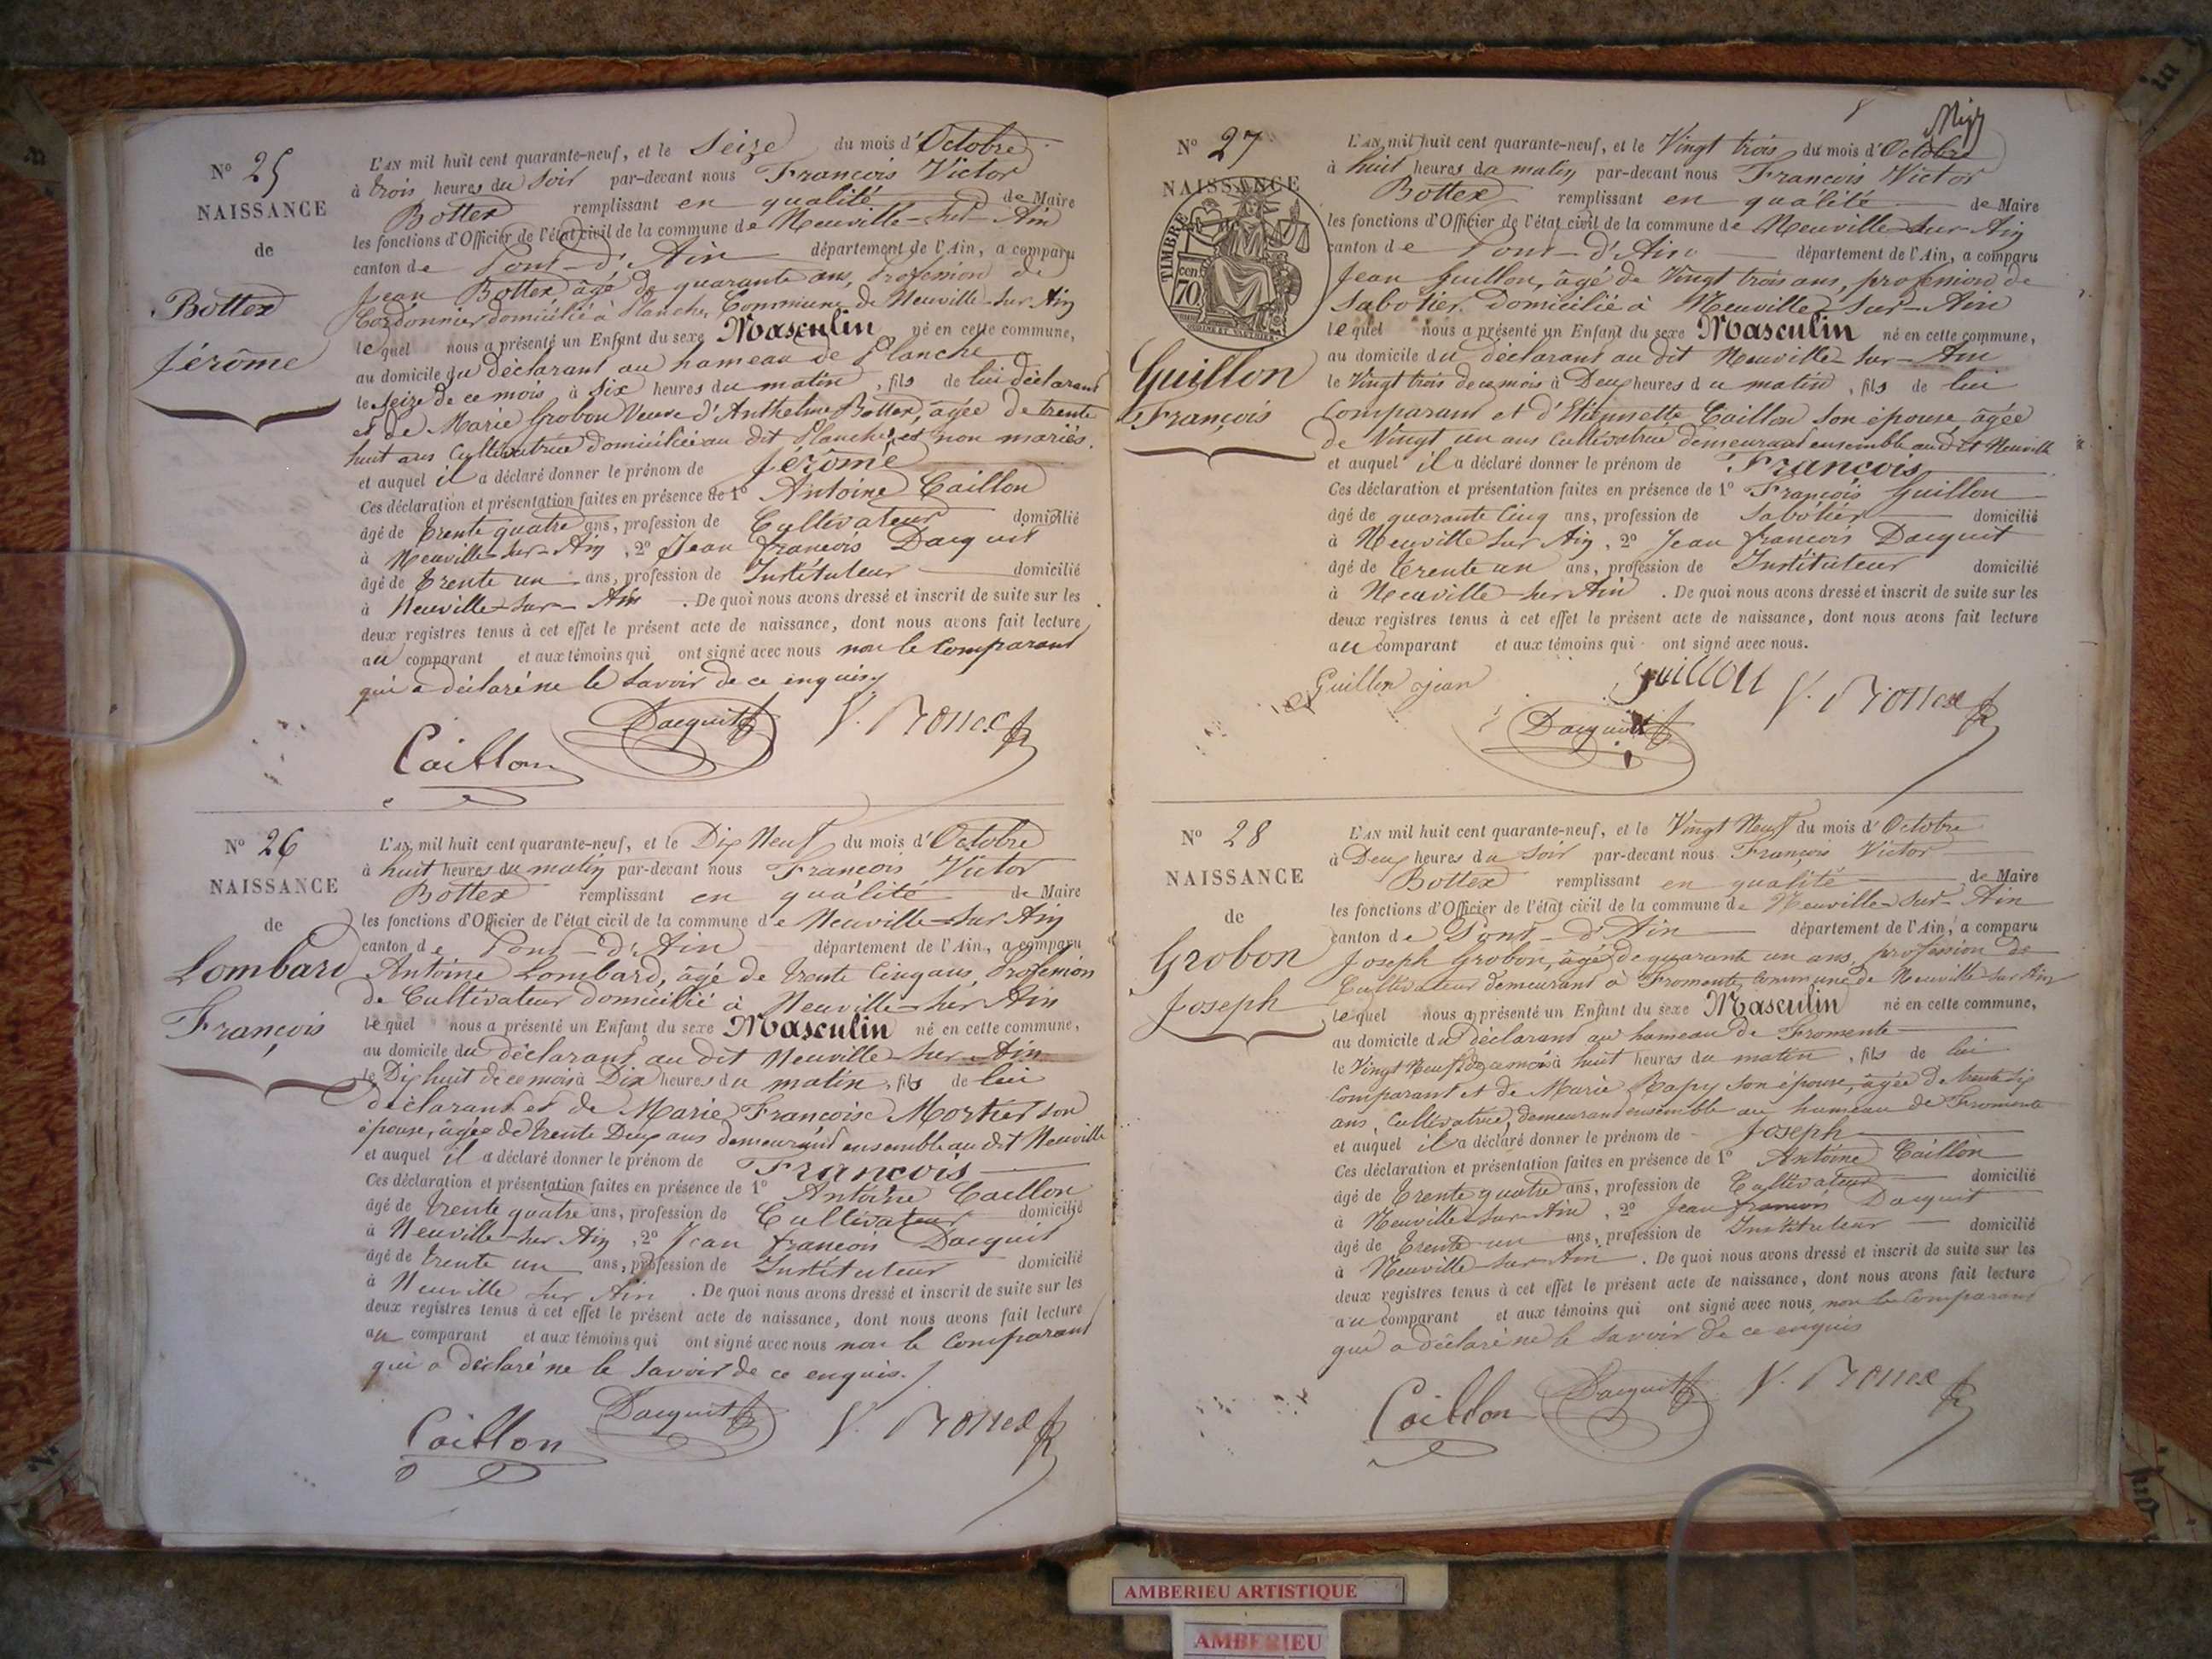 N° 25
NAISSANCE
de
Bottex
Jérôme
L'AN mil huit cent quarante-neuf, et le Seize du mois d'Octobre
à trois heures du soir par-devant nous François Victor
Bottex remplissant en qualité de Maire
les fonctions d'Officier de l'état civil de la commune de Neuville-sur-Ain
canton de Pont-d'Ain département de l'Ain, a comparu
Jean Bottex âgé de quarante ans, Profession de
Cordonnier domicilié à Planche, Commune de Neuville-sur-Ain
lequel nous a présenté un Enfant du sexe Masculin né en cette commune,
au domicile du déclarant au hameau de Planche
le Seize de ce mois à six heures du matin, fils de lui déclarant
et de Marie Grobon Veuve d'Anthelme Bottex, âgée de trente
huit ans Cultivatrice domiciliée au dit Planche, et non mariés.
et auquel il a déclaré donner le prénom de Jérôme
Ces déclaration et présentation faites en présence de 1° Antoine Caillon
âgé de trente quatre ans, profession de Cultivateur domicilié
à Neuville-sur-Ain, 2° Jean françois Dacquit
âgé de trente un ans, profession de Instituteur domicilié
à Neuville-sur-Ain. De quoi nous avons dressé et inscrit de suite sur les
deux registres tenus à cet effet le présent acte de naissance, dont nous avons fait lecture
au comparant et aux témoins qui ont signé avec nous non le Comparant
qui a déclaré ne le savoir de ce enquis
Caillon Dacquit V. Bottex
N° 26
NAISSANCE
de
Lombard
François
L'AN mil huit cent quarante-neuf, et le Dix Neuf du mois d'Octobre
à huit heures du matin par-devant nous François Victor
Bottex remplissant en qualité de Maire
les fonctions d'Officier de l'état civil de la commune de Neuville-sur Ain
canton de Pont-d'Ain département de l'Ain, a comparu
Antoine Lombard, âgé de trente Cinq ans, Profession
de Cultivateur domicilié à Neuville-sur Ain
lequel nous a présenté un Enfant du sexe Masculin né en cette commune,
au domicile du déclarant au dit Neuville-sur-Ain
le Dix huit de ce mois à Dix heures du matin, fils de lui
déclarant et de Marie Françoise Mortier son
épouse, âgée de trente Deux ans demeurant ensemble au dit Neuville
et auquel il a déclaré donner le prénom de François
Ces déclaration et présentation faites en présence de 1° Antoine Caillon
âgé de trente quatre ans, profession de Cultivateur domicilié
à Neuville-sur Ain, 2° Jean françois Dacquit
âgé de trente un ans, profession de Instituteur domicilié
à Neuville sur Ain. De quoi nous avons dressé et inscrit de suite sur les
deux registres tenus à cet effet le présent acte de naissance, dont nous avons fait lecture
au comparant et aux témoins qui ont signé avec nous non le Comparant
qui a déclaré ne le savoir de ce enquis.
Caillon Dacquit V. Bottex
N° 27
NAISSANCE
TIMBRE
70 cent
Guillon
François
L'AN mil huit cent quarante-neuf, et le Vingt trois du mois d'Octobre
à huit heures du matin par-devant nous François Victor
Bottex remplissant en qualité de Maire
les fonctions d'Officier de l'état civil de la commune de Neuville-sur-Ain
canton de Pont-d'Ain département de l'Ain, a comparu
Jean Guillon, âgé de Vingt trois ans, profession de
Sabotier domicilié à Neuville-sur-Ain
lequel nous a présenté un Enfant du sexe Masculin né en cette commune,
au domicile du déclarant au dit Neuville-sur-Ain
le Vingt trois de ce mois à Deux heures du matin, fils de lui
Comparant et d'Etiennette Caillon son épouse, âgée
de Vingt un ans Cultivatrice demeurant ensemble au dit Neuville
et auquel il a déclaré donner le prénom de François
Ces déclaration et présentation faites en présence de 1° François Guillon
âgé de quarante Cinq ans, profession de Sabotier domicilié
à Neuville sur Ain, 2° Jean françois Dacquit
âgé de trente un ans, profession de Instituteur domicilié
à Neuville-sur Ain. De quoi nous avons dressé et inscrit de suite sur les
deux registres tenus à cet effet le présent acte de naissance, dont nous avons fait lecture
au comparant et aux témoins qui ont signé avec nous.
Guillon jean guillon V. Bottex
Dacquit
N° 28
NAISSANCE
de
Grobon
Joseph
L'AN mil huit cent quarante-neuf, et le Vingt Neuf du mois d'Octobre
à Deux heures du soir par-devant nous François Victor
Bottex remplissant en qualité de Maire
les fonctions d'Officier de l'état civil de la commune de Neuville-sur-Ain
canton de Pont-d'Ain département de l'Ain, a comparu
Joseph Grobon, âgé de quarante un ans, profession de
Cultivateur demeurant à Fromente, Commune de Neuville-sur Ain
lequel nous a présenté un Enfant du sexe Masculin né en cette commune,
au domicile du Déclarant au hameau de Fromente
le Vingt Neuf de ce mois à huit heures du matin, fils de lui
Comparant et de Marie Rapy son épouse, âgée de trente six
ans, Cultivatrice, demeurant ensemble au hameau de Fromente
et auquel il a déclaré donner le prénom de Joseph
Ces déclaration et présentation faites en présence de 1° Antoine Caillon
âgé de trente quatre ans, profession de Cultivateur domicilié
à Neuville-sur-Ain, 2° Jean françois Dacquit
âgé de trente un ans, profession de Instituteur domicilié
à Neuville-sur-Ain. De quoi nous avons dressé et inscrit de suite sur les
deux registres tenus à cet effet le présent acte de naissance, dont nous avons fait lecture
au comparant et aux témoins qui ont signé avec nous, non le Comparant
qui a déclaré ne le savoir de ce enquis
Caillon Dacquit V. Bottex
AMBERIEU ARTISTIQUE
AMBERIEU